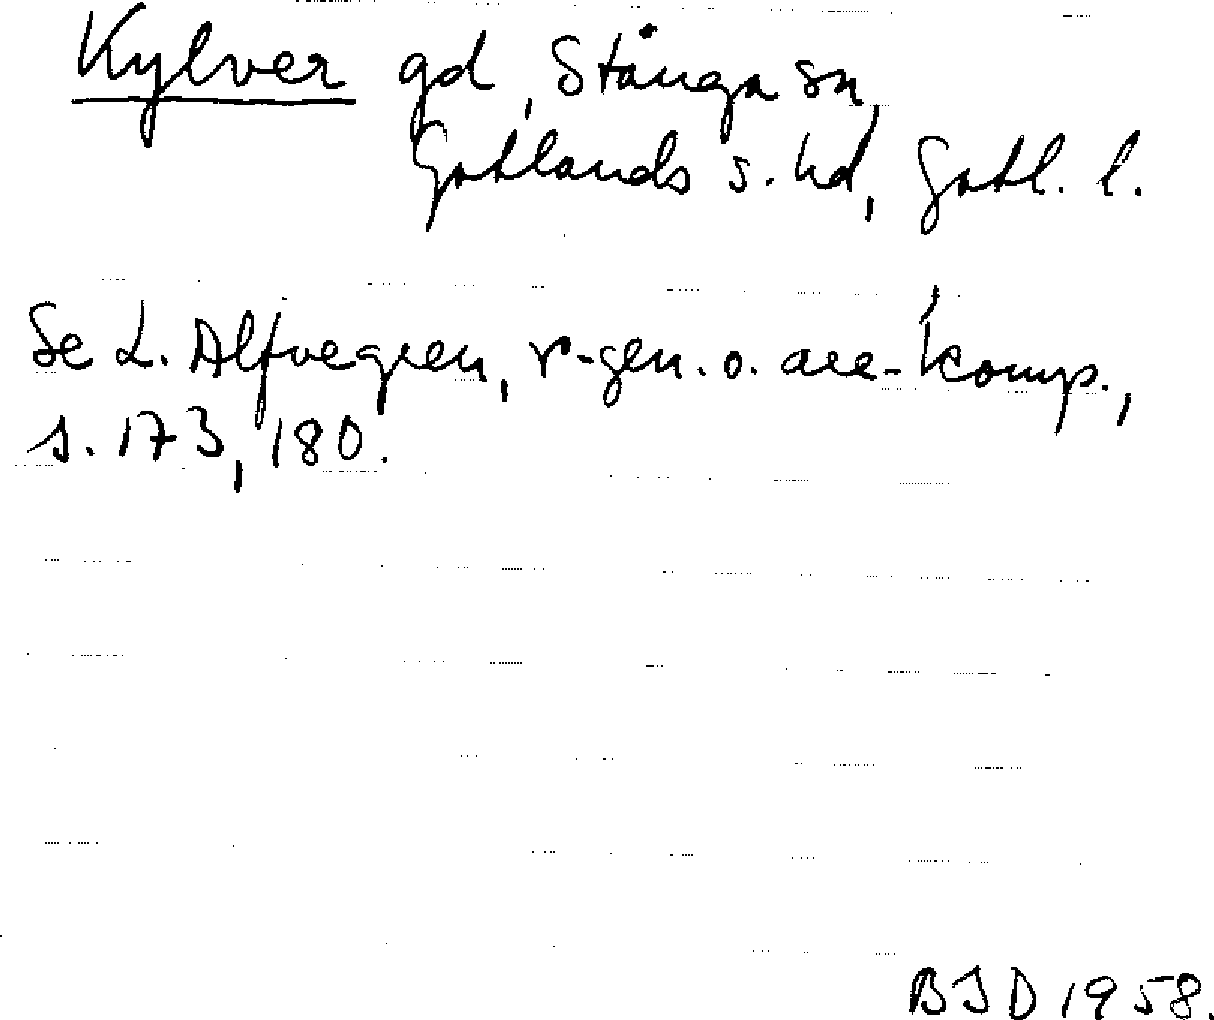 Kylver gd, Stånga sn,
Gotlands s. hd, Gotl. l.
Se L. Alfvegren, r-gen. o. are-komp.,
s. 173, 180.
BSD 1958.